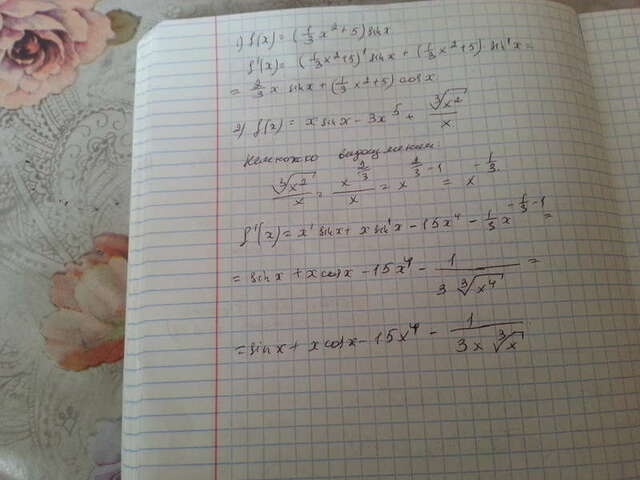 1) f(x) = (1/3 x² + 5) sin x
f'(x) = (1/3 x² + 5)' sin x + (1/3 x² + 5) · sin' x =
= 2/3 x sin x + (1/3 x² + 5) cos x
2) f(x) = x sin x - 3x⁵ + ∛x² / x
Немножко видоизменим
∛x² / x = x^(2/3) / x = x^(2/3 - 1) = x^(-1/3)
f'(x) = x' sin x + x sin' x - 15x⁴ - 1/3 x^(-1/3 - 1) =
= sin x + x cos x - 15x⁴ - 1 / (3 ∛x⁴) =
= sin x + x cos x - 15x⁴ - 1 / (3x ∛x)